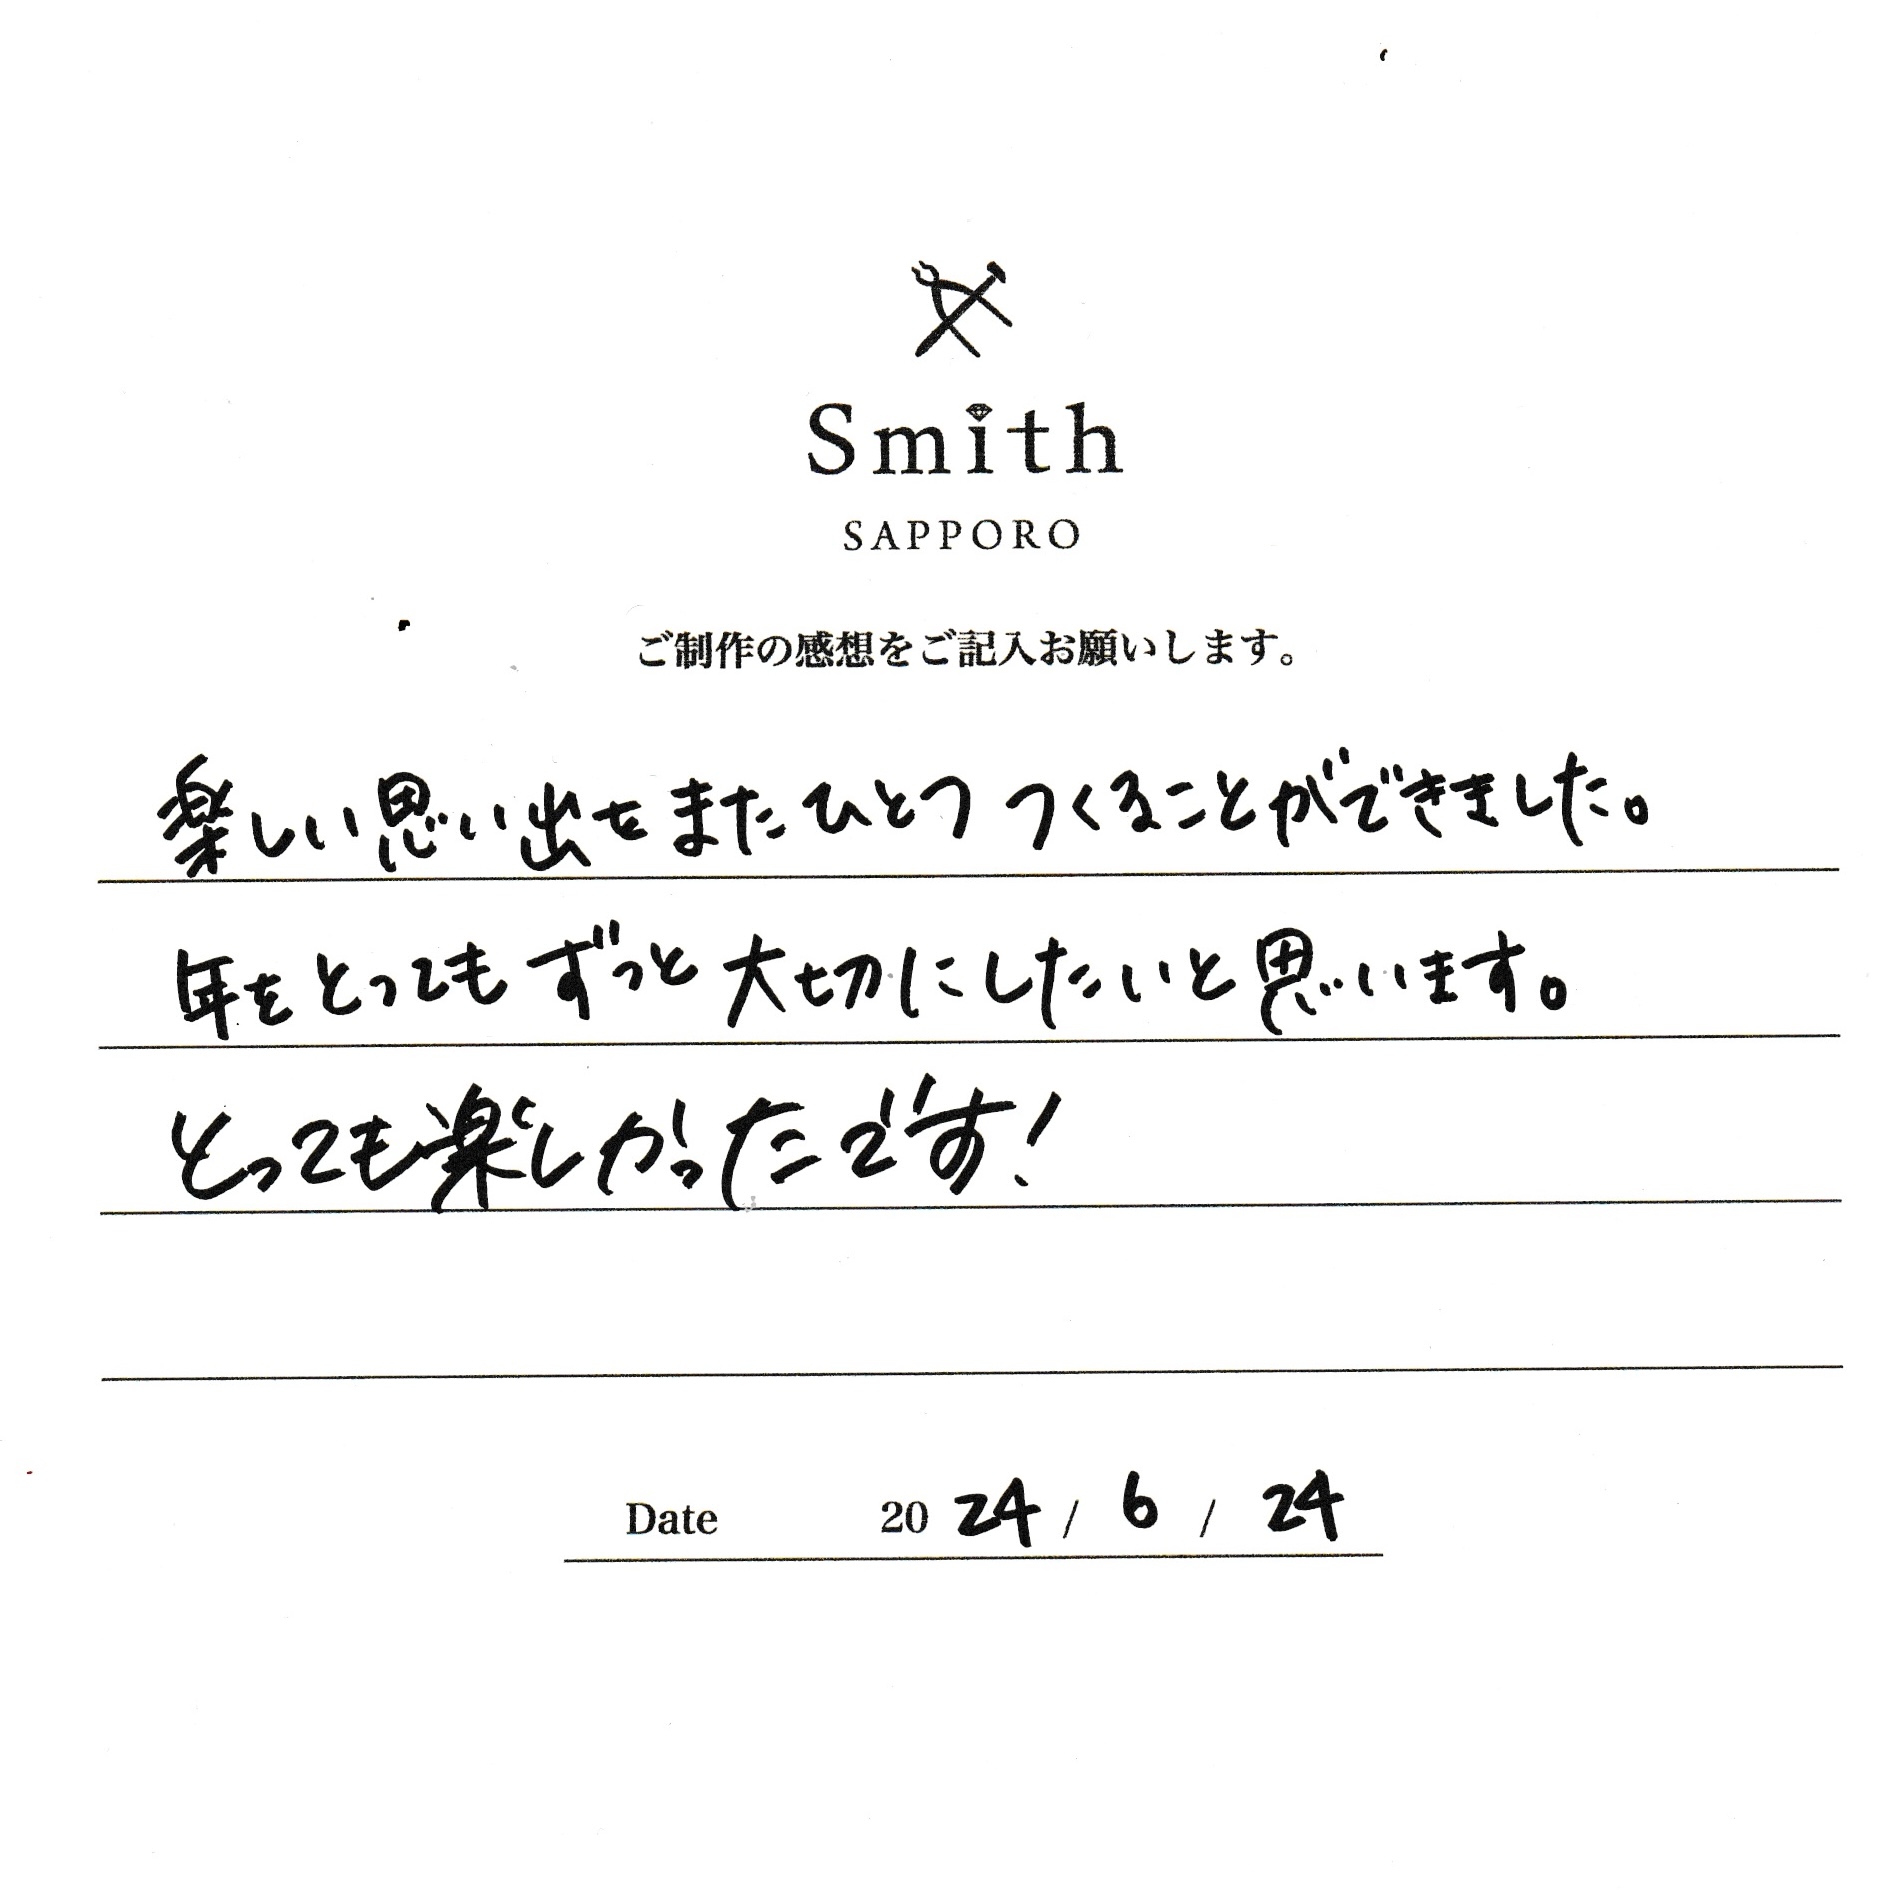 Smith
SAPPORO
ご制作の感想をご記入お願いします。
楽しい思い出をまたひとつ つくることができました。
年をとってもずっと大切にしたいと思います。
とっても楽しかったです!
Date 2024 / 6 / 24